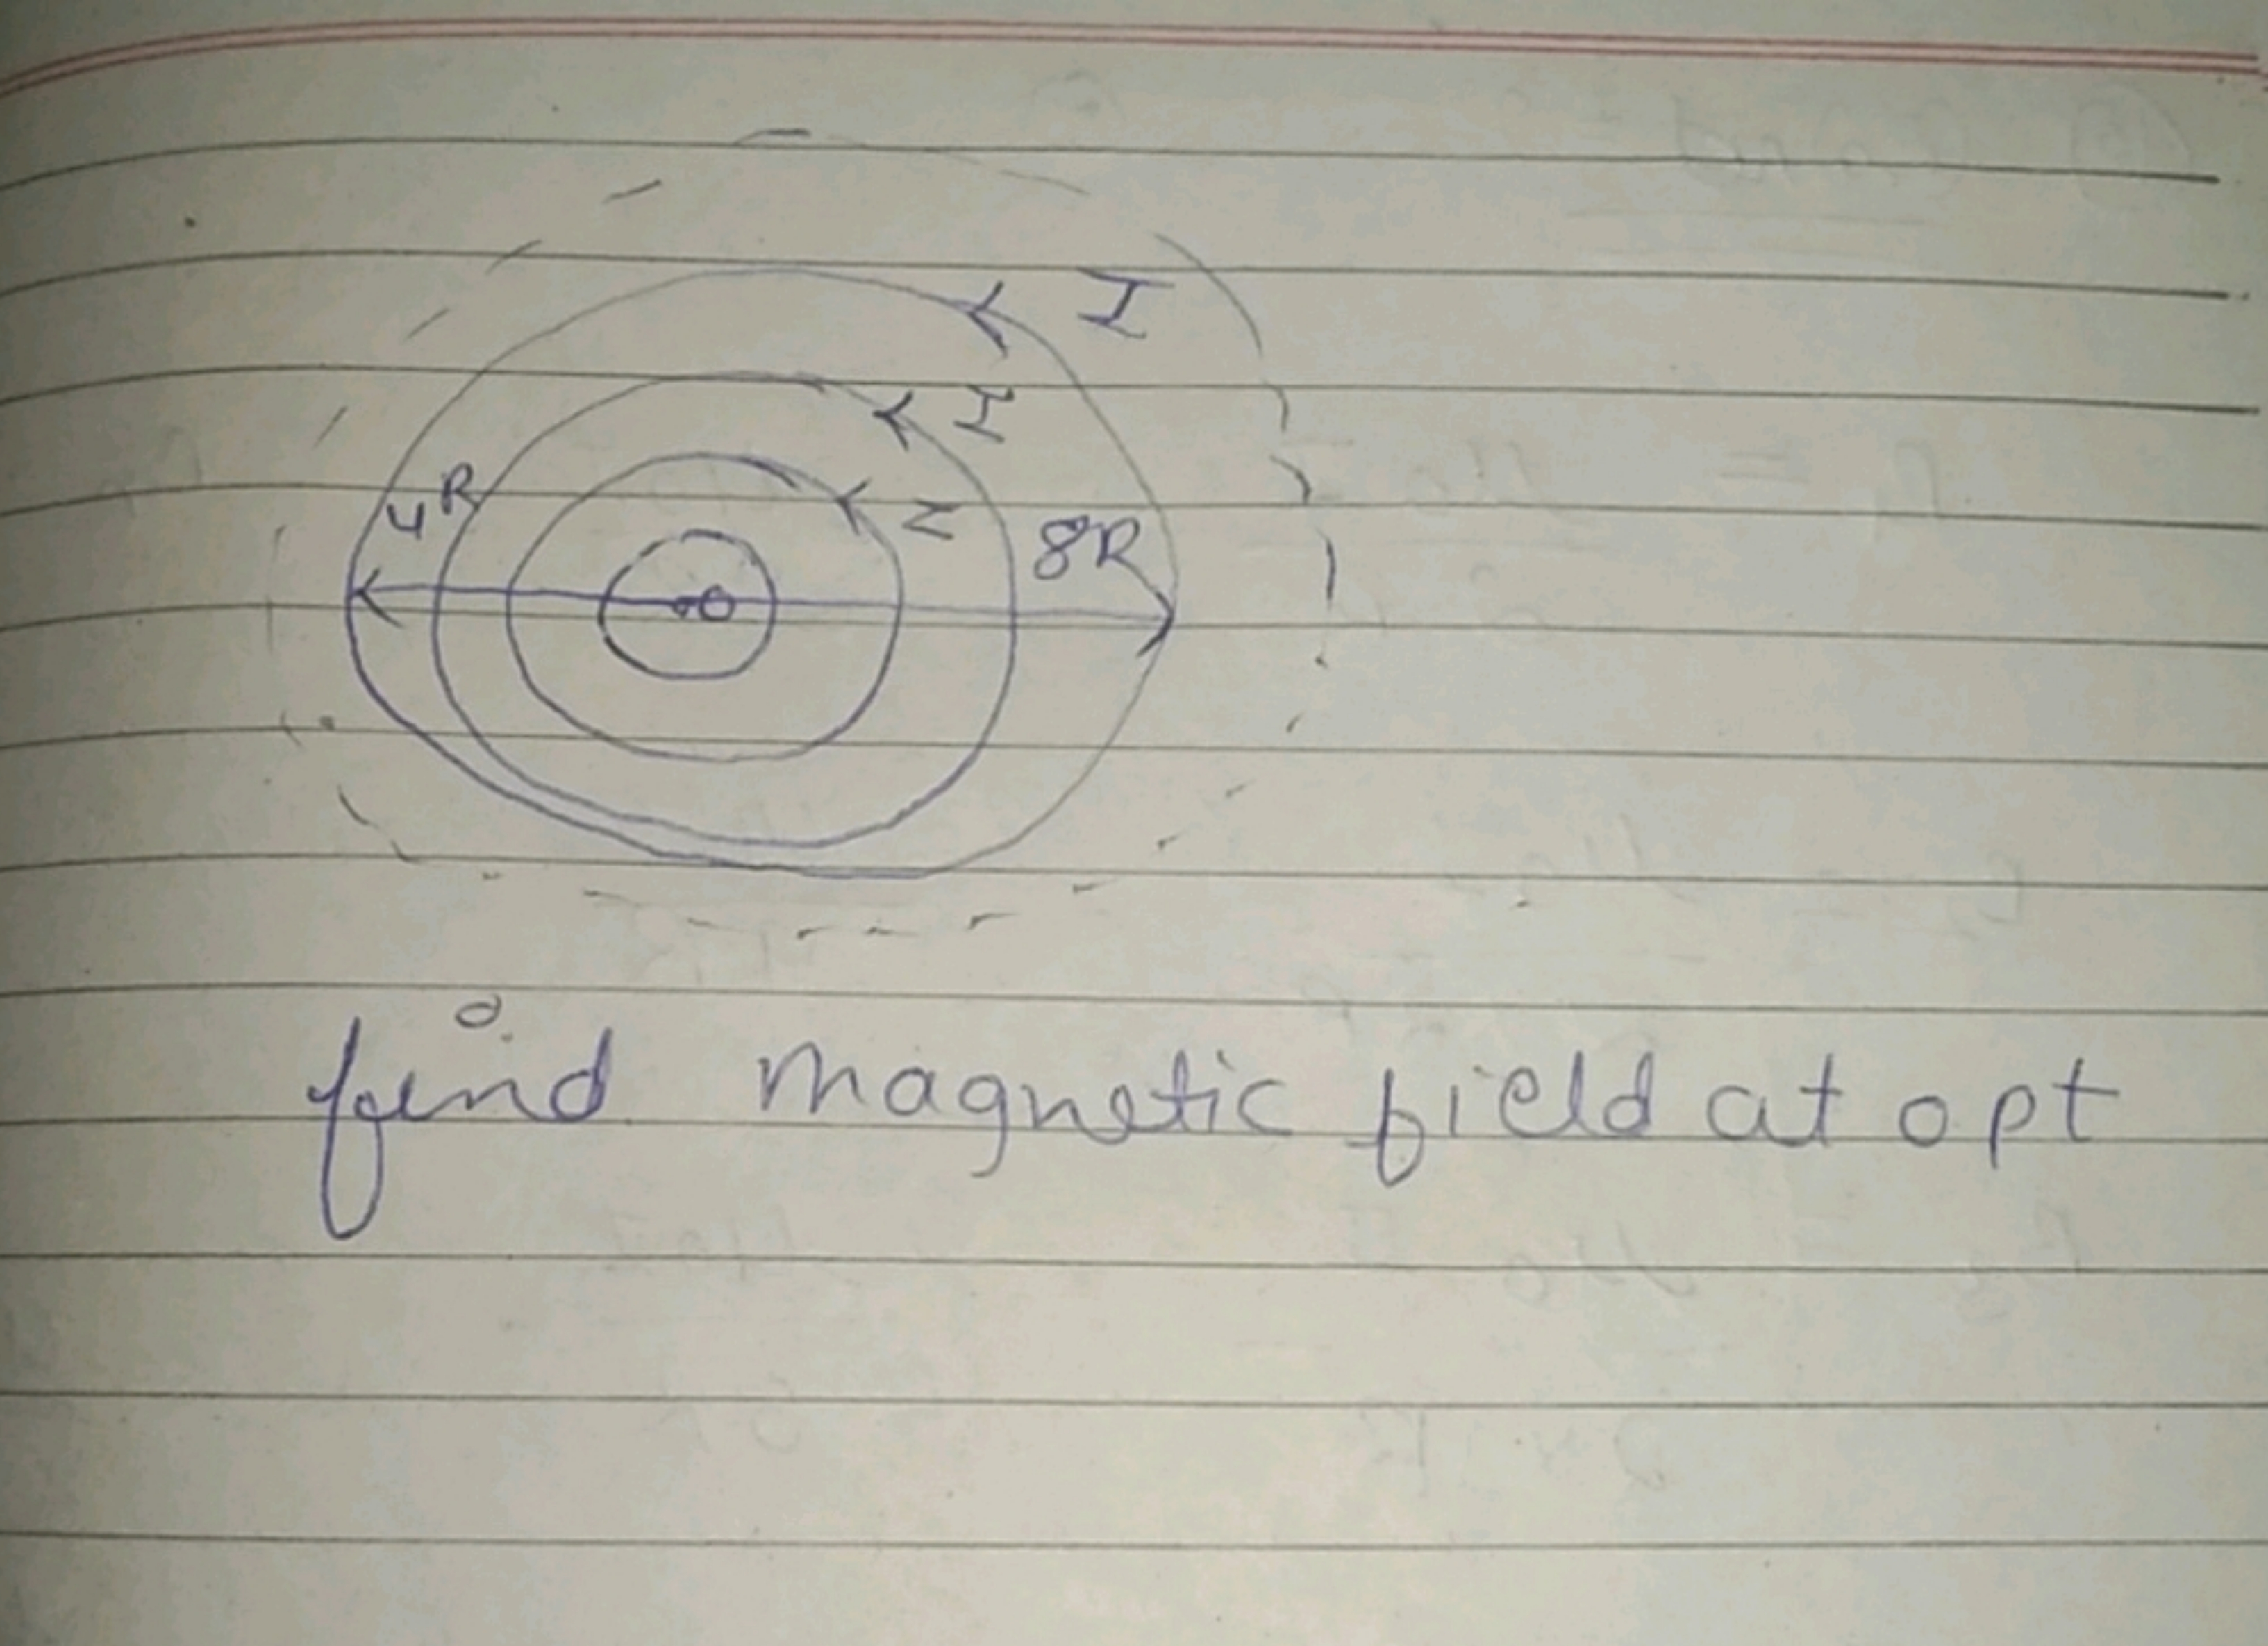 I
I
I
4R
8R
O
find magnetic field at o pt